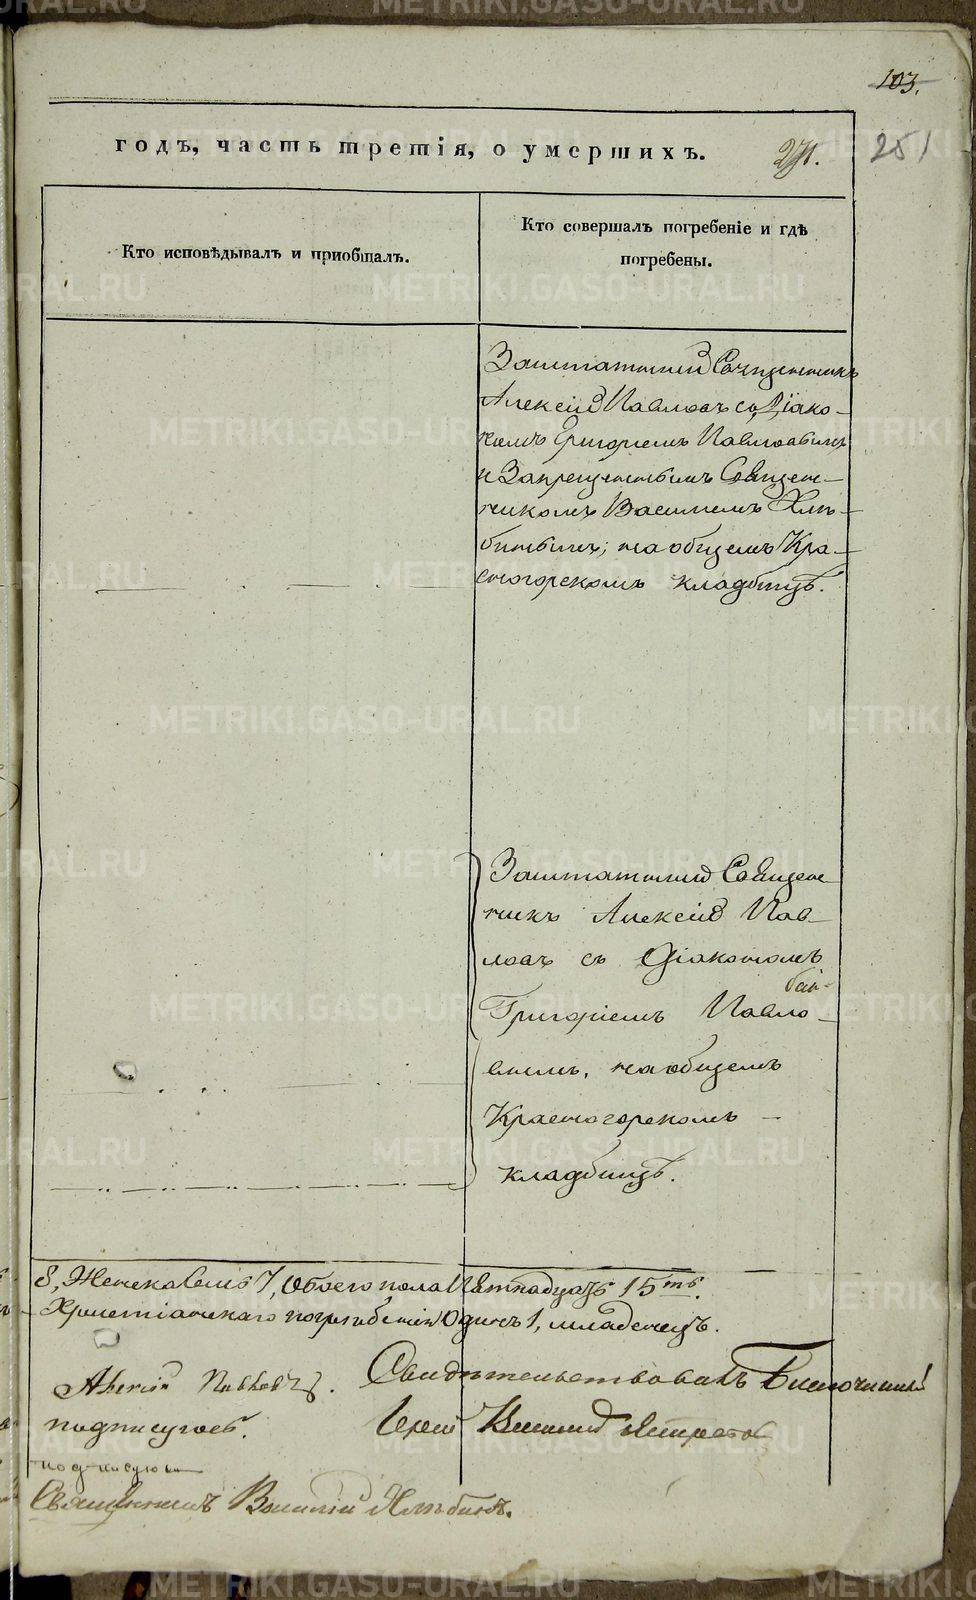 103.
годъ, часть третія, о умершихъ.
271.
251
Кто исповѣдывалъ и приобщалъ.
Кто совершалъ погребеніе и гдѣ
погребены.
Заштатный Священникъ
Алексій Павловъ съ Діако-
номъ Григоріемъ Павловымъ
и Запрещеннымъ Священ-
никомъ Василіемъ Хлѣ-
бинымъ, на общемъ Кра-
сногорскомъ кладбищѣ.
Заштатный Священ
никъ Алексій Пав-
ловъ съ Діакономъ
Григоріемъ Павло-
вымъ, на общемъ
Красногорскомъ
кладбищѣ.
8, Женска 7, Обоего пола Пятнадцать 15ть.
Христіанскаго погребенія Одинъ 1, младенецъ.
Алексій Павловъ
подписуюсь.
Свидѣтельствовалъ Благочинный
Іерей Василій
подписуюсь
Священникъ Василій Хлѣбинъ.
METRIKI.GASO-URAL.RU